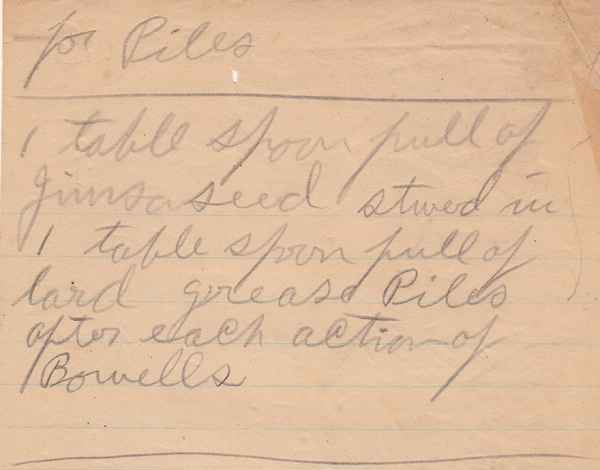 for Piles
1 table spoon full of
Jimsonseed stwed in
1 table spoon full of
lard grease Piles
after each action of
Bowells